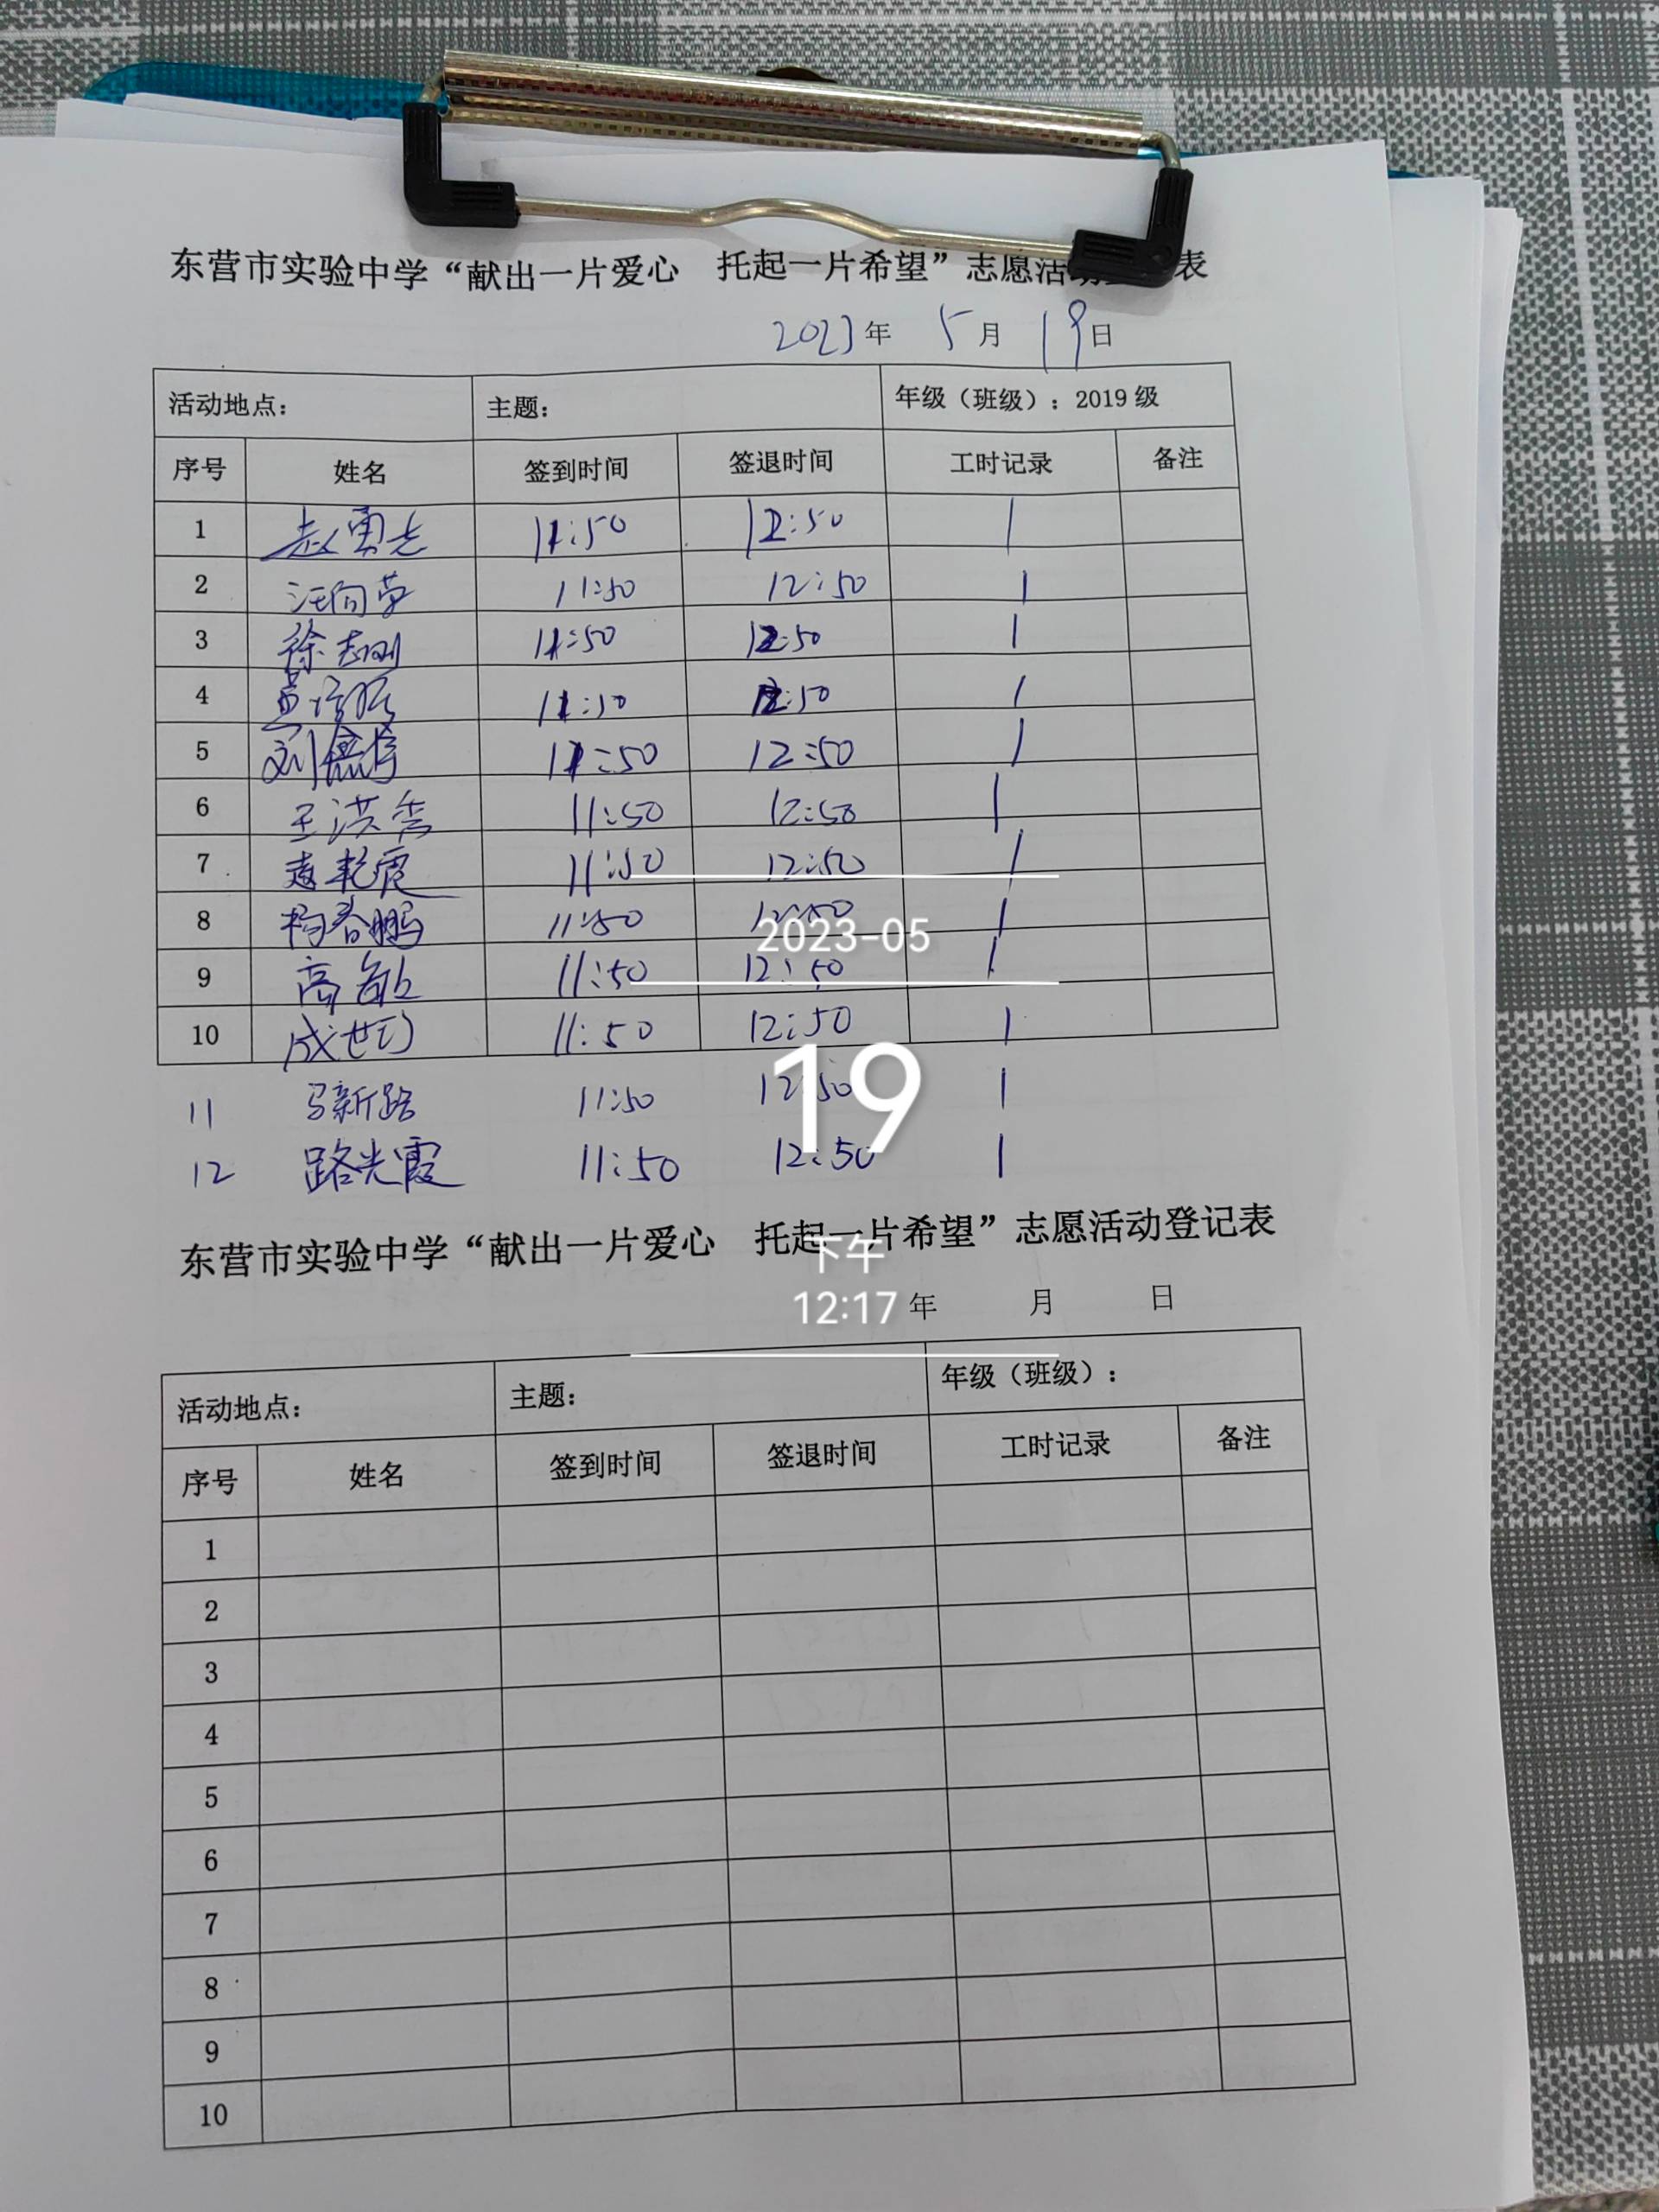 东营市实验中学“献出一片爱心 托起一片希望”志愿活 表
2023年 5月 19日
活动地点： 主题： 年级（班级）：2019级
序号 姓名 签到时间 签退时间 工时记录 备注
1 赵勇志 11:50 12:50 1
2 汪向荣 11:50 12:50 1
3 徐志刚 11:50 12:50 1
4 11:50 12:50 1
5 刘 11:50 12:50 1
6 王洪秀 11:50 12:50 1
7 袁乾震 11:50 12:50 1
8 杨春鹏 11:50 12:50 1
2023-05
9 高敏 11:50 12:50 1
10 成世 11:50 12:50 1
19
11 马新路 11:50 12:50 1
12 路光霞 11:50 12:50 1
东营市实验中学“献出一片爱心 托起一片希望”志愿活动登记表
下午
12:17
年 月 日
活动地点： 主题： 年级（班级）：
序号 姓名 签到时间 签退时间 工时记录 备注
1
2
3
4
5
6
7
8
9
10